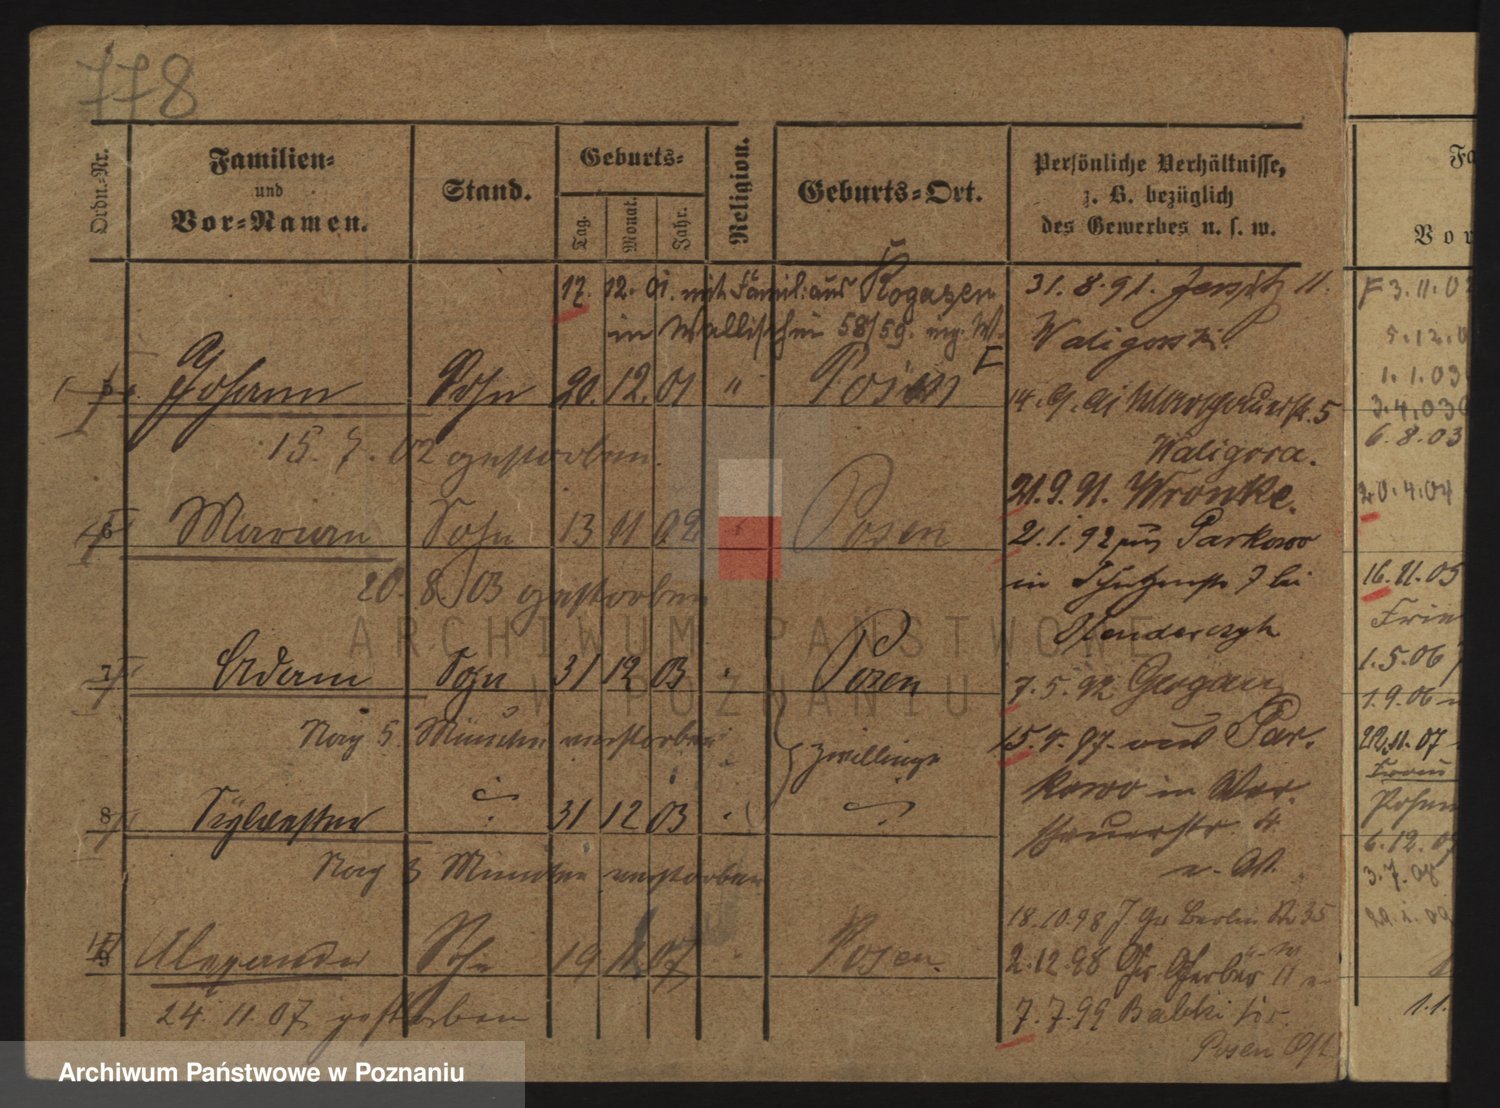 778
Ordn.-Nr.
Familien-
und
Vor-Namen.
Stand.
Geburts-
Tag.
Monat.
Jahr.
Religion.
Geburts-Ort.
Persönliche Verhältnisse,
z. B. bezüglich
des Gewerbes u. s. w.
17. 12. 01. mit Famil: aus Rogasen
in Wallischei 58/59.
5 Johann Sohn 20. 12. 01 " Posen
15. 7. 02 gestorben.
6 Marian Sohn 13 11 02 " Posen
20. 8. 03 gestorben
7 Adam Sohn 31 12 03 Posen
Nach 5 Stunden verstorben
Zwillinge
8 Sylvester 31 12 03
Nach 3 Stunden verstorben
9 Alexander Sohn 19 07 Posen.
24. 11. 07 gestorben
31. 8. 91. Jersitz 11.
Waligorski.
14. 9. 91 5
Waligora.
21. 9. 91. Wronke.
21. 1. 92 aus Parkowo
in Schützenstr 7 bei
7. 5. 92 Glogau
15. 97. aus Par-
kowo in War-
schauerstr. 4
18. 10. 98 Berlin 35
2. 12. 98 Gr. Gerber 11
7. 7. 99 Babki Kr.
Posen Ost
Fa
Vor
F 3. 11. 0
5. 12. 0
1. 1. 03
3. 4. 03
6. 8. 03
20. 4. 04
16. 11. 05
1. 5. 06
1. 9. 06
22. 11. 07
6. 12. 0
3. 7. 08
1. 1.
ARCHIWUM PAŃSTWOWE
W POZNANIU
Archiwum Państwowe w Poznaniu